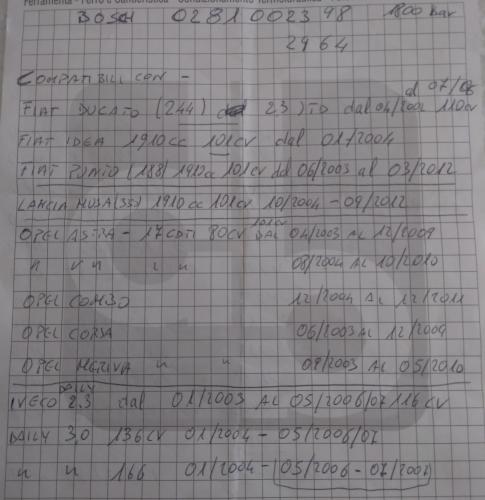 BOSCH 0281002398 1800 bar
2964
COMPATIBILI CON -
al 07/06
FIAT DUCATO (244) 23 JTD dal 04/2002 110CV
FIAT IDEA 1910cc 101CV dal 01/2004
FIAT PUNTO (188) 1910cc 101CV dal 06/2003 al 03/2012
LANCIA MUSA (350) 1910cc 101CV 10/2004 - 09/2012
101CV
OPEL ASTRA - 17 CDTI 80CV DAL 04/2003 AL 12/2009
" " " " " 08/2004 AL 10/2010
OPEL COMBO 12/2004 AL 12/2011
OPEL CORSA 06/2003 AL 12/2009
OPEL MERIVA " " 09/2003 AL 05/2010
DAILY
IVECO 2.3 dal 01/2003 AL 05/2006/07 116CV
DAILY 3,0 136CV 01/2004 - 05/2006/07
" " 166 01/2004 - 05/2006 - 07/2007